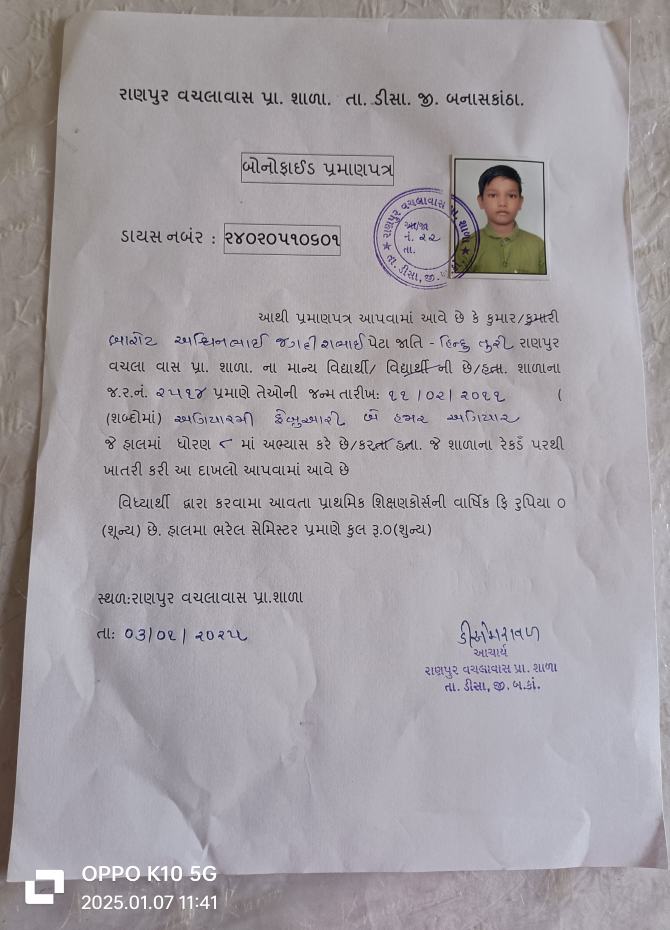 રાણપુર વચલાવાસ પ્રા. શાળા. તા. ડીસા. જી. બનાસકાંઠા.
બોનોફાઈડ પ્રમાણપત્ર
રાણપુર વચલાવાસ પ્રા. શાળા
નં. ૨૨
તા.
તા. ડીસા, જી.
ડાયસ નબંર : ૨૪૦૨૦૫૧૦૬૦૧
આથી પ્રમાણપત્ર આપવામાં આવે છે કે કુમાર/કુમારી
બારોટ અશ્વિનભાઈ જગદીશભાઈ પેટા જાતિ - હિન્દુ તુરી રાણપુર
વચલા વાસ પ્રા. શાળા. ના માન્ય વિદ્યાર્થી/ વિદ્યાર્થી ની છે/હતા. શાળાના
જ.ર.નં. ૨૫૧૪ પ્રમાણે તેઓની જન્મ તારીખ: ૧૧ /૦૨/ ૨૦૧૧ (
(શબ્દોમાં) અગિયારમી ફેબ્રુઆરી બે હજાર અગિયાર
જે હાલમાં ધોરણ ૮ માં અભ્યાસ કરે છે/કરતા હતા. જે શાળાના રેકર્ડ પરથી
ખાતરી કરી આ દાખલો આપવામાં આવે છે
વિધ્યાર્થી દ્વારા કરવામા આવતા પ્રાથમિક શિક્ષણકોર્સની વાર્ષિક ફિ રુપિયા ૦
(શૂન્ય) છે. હાલમા ભરેલ સેમિસ્ટર પ્રમાણે કુલ રૂ.૦(શુન્ય)
સ્થળ:રાણપુર વચલાવાસ પ્રા.શાળા
તા: ૦૩/૦૧/ ૨૦૨૫
આચાર્ય
રાણપુર વચલાવાસ પ્રા. શાળા
તા. ડીસા, જી. બ.કાં.
OPPO K10 5G
2025.01.07 11:41